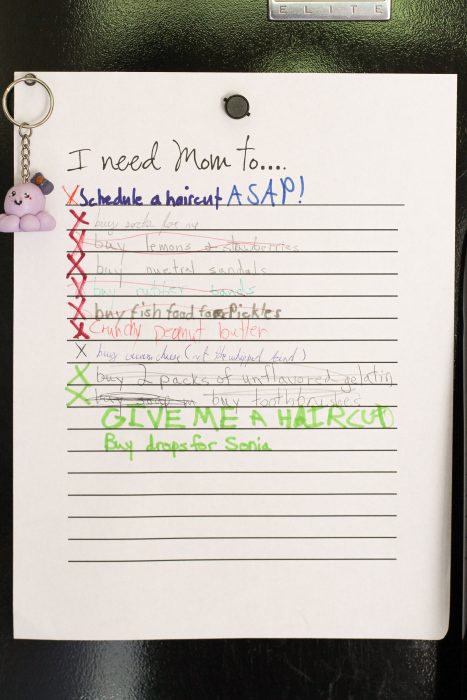 ELITE
I need Mom to....
X Schedule a haircut ASAP!
X buy socks for me
X buy lemons & strawberries
X buy neutral sandals
X buy rubber bands
X buy fish food for Pickles
X Crunchy peanut butter
X buy cream cheese (not the whipped kind)
X buy 2 packs of unflavored gelatin
X buy toothbrushes
GIVE ME A HAIRCUT
Buy drops for Sonia